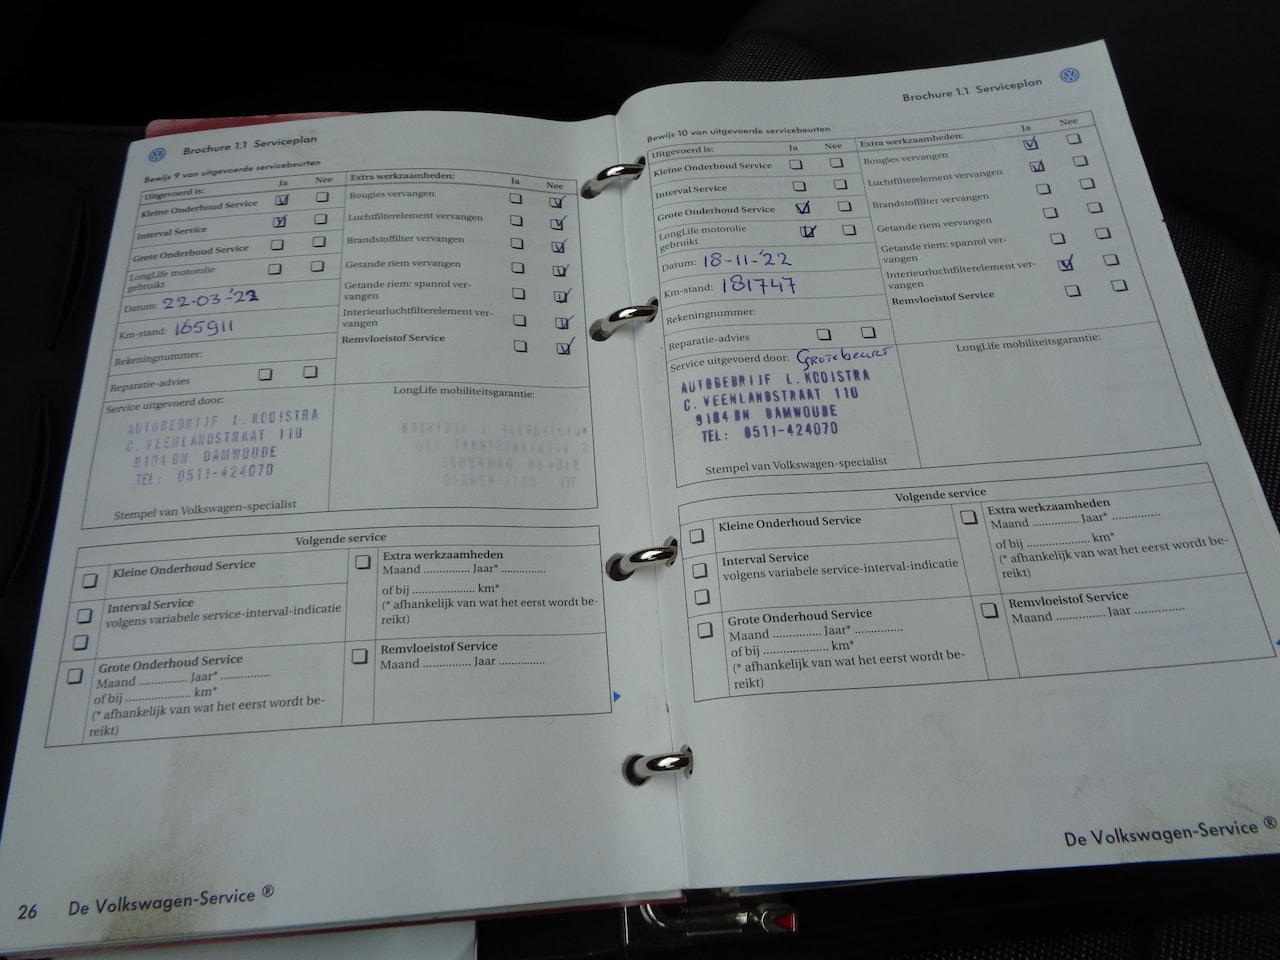 Brochure 1.1 Serviceplan
Bewijs 9 van uitgevoerde servicebeurten
Uitgevoerd is: Ja Nee Extra werkzaamheden: Ja Nee
Kleine Onderhoud Service
Interval Service
Grote Onderhoud Service
LongLife motorolie
gebruikt
Datum: 22-03-'22
Km-stand: 165911
Rekeningnummer:
Reparatie-advies
Bougies vervangen
Luchtfilterelement vervangen
Brandstoffilter vervangen
Getande riem vervangen
Getande riem: spanrol ver-
vangen
Interieurluchtfilterelement ver-
vangen
Remvloeistof Service
Service uitgevoerd door:
AUTOBEDRIJF L. KOOISTRA
C. VEENLANDSTRAAT 110
9104 BN DAMWOUDE
TEL: 0511-424070
Stempel van Volkswagen-specialist
LongLife mobiliteitsgarantie:
Volgende service
Kleine Onderhoud Service
Interval Service
volgens variabele service-interval-indicatie
Grote Onderhoud Service
Maand .............. Jaar* ..............
of bij .................... km*
(* afhankelijk van wat het eerst wordt be-
reikt)
Extra werkzaamheden
Maand .............. Jaar* ..............
of bij .................... km*
(* afhankelijk van wat het eerst wordt be-
reikt)
Remvloeistof Service
Maand .............. Jaar ..............
26 De Volkswagen-Service ®
Brochure 1.1 Serviceplan
Bewijs 10 van uitgevoerde servicebeurten
Uitgevoerd is: Ja Nee Extra werkzaamheden: Ja Nee
Kleine Onderhoud Service
Interval Service
Grote Onderhoud Service
LongLife motorolie
gebruikt
Datum: 18-11-'22
Km-stand: 181747
Rekeningnummer:
Reparatie-advies
Bougies vervangen
Luchtfilterelement vervangen
Brandstoffilter vervangen
Getande riem vervangen
Getande riem: spanrol ver-
vangen
Interieurluchtfilterelement ver-
vangen
Remvloeistof Service
Service uitgevoerd door: Grotebeurt
AUTOBEDRIJF L. KOOISTRA
C. VEENLANDSTRAAT 110
9104 BN DAMWOUDE
TEL: 0511-424070
Stempel van Volkswagen-specialist
LongLife mobiliteitsgarantie:
Volgende service
Kleine Onderhoud Service
Interval Service
volgens variabele service-interval-indicatie
Grote Onderhoud Service
Maand .............. Jaar* ..............
of bij .................... km*
(* afhankelijk van wat het eerst wordt be-
reikt)
Extra werkzaamheden
Maand .............. Jaar* ..............
of bij .................... km*
(* afhankelijk van wat het eerst wordt be-
reikt)
Remvloeistof Service
Maand .............. Jaar ..............
De Volkswagen-Service ®